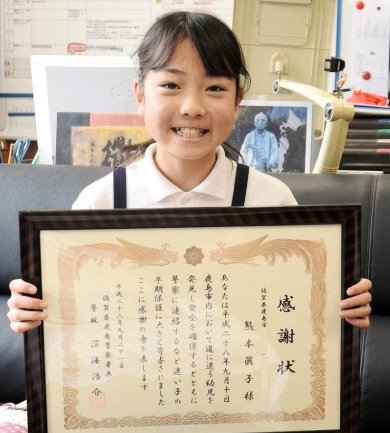 感謝状
佐賀県鹿島市
熊本眞子様
あなたは平成二十八年九月十日
鹿島市内において道に迷う幼児を
発見し安全を確保するとともに
警察に連絡するなど迷い子の
早期保護に大きく寄与されました
ここに感謝の意を表します
平成二十八年九月二十一日
佐賀県鹿島警察署長
警視 深海浩介